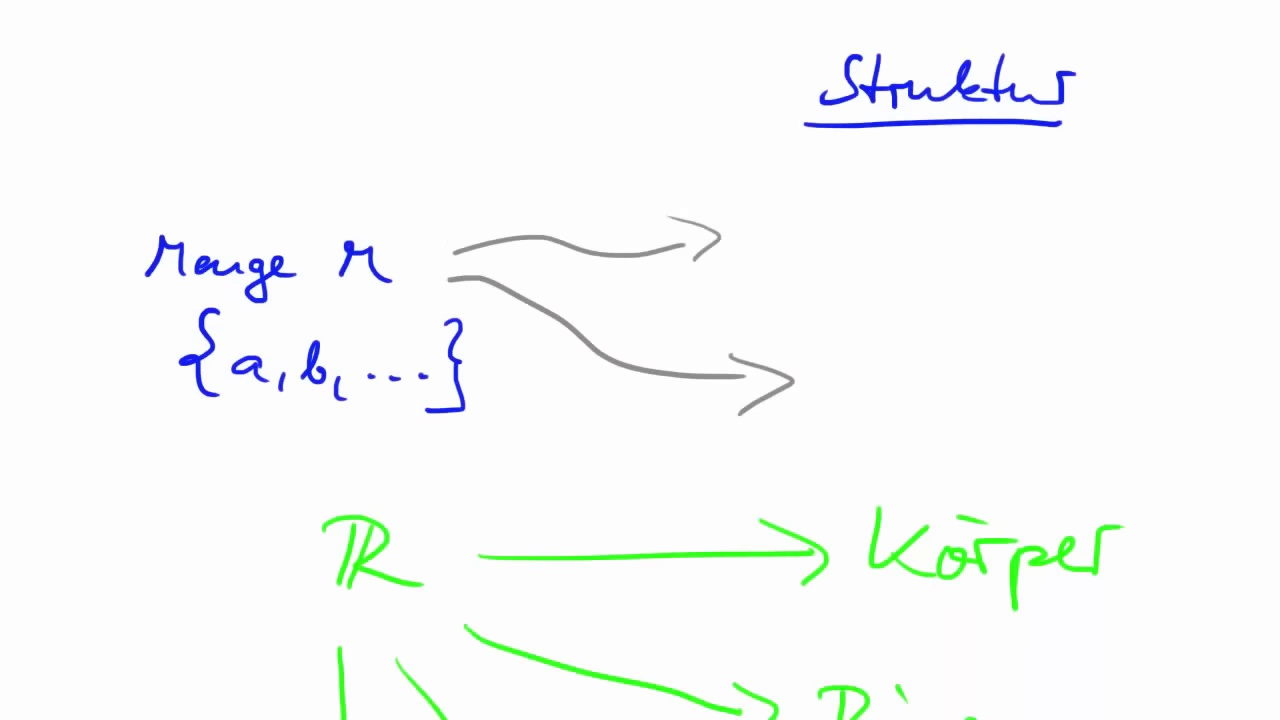 Struktur
Menge M
{a, b, ...}
ℝ Körper